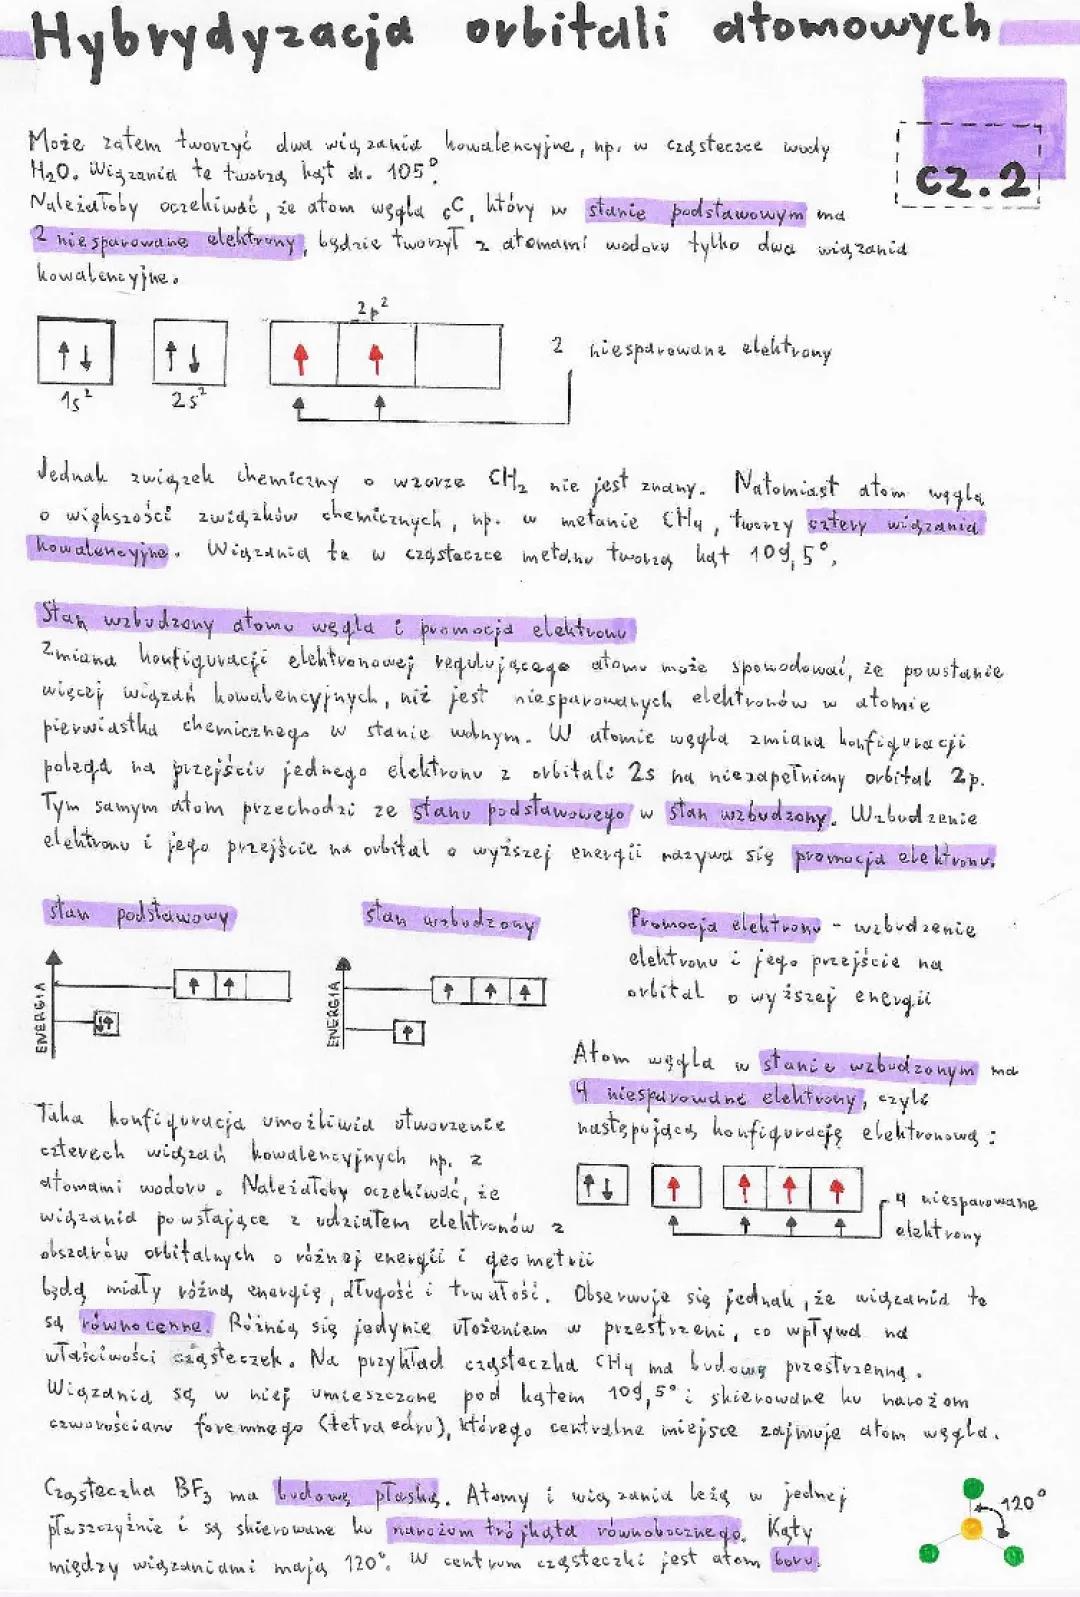 Hybrydyzacja orbitali atomowych
cz.2
Może zatem tworzyć dwa wiązania kowalencyjne, np. w cząsteczce wody
H₂O. Wiązania te tworzą kąt ok. 105°.
Należałoby oczekiwać, że atom węgla ₆C, który w stanie podstawowym ma
2 niesparowane elektrony, będzie tworzył z atomami wodoru tylko dwa wiązania
kowalencyjne.
2p²
1s²
2s²
2 niesparowane elektrony
Jednak związek chemiczny o wzorze CH₂ nie jest znany. Natomiast atom węgla
o większości związków chemicznych, np. w metanie CH₄, tworzy cztery wiązania
kowalencyjne. Wiązania te w cząsteczce metanu tworzą kąt 109,5°.
Stan wzbudzony atomu węgla i promocja elektronu
Zmiana konfiguracji elektronowej regulującego atomu może spowodować, że powstanie
więcej wiązań kowalencyjnych, niż jest niesparowanych elektronów w atomie
pierwiastka chemicznego w stanie wolnym. W atomie węgla zmiana konfiguracji
polega na przejściu jednego elektronu z orbitali 2s na niezapełniony orbital 2p.
Tym samym atom przechodzi ze stanu podstawowego w stan wzbudzony. Wzbudzenie
elektronu i jego przejście na orbital o wyższej energii nazywa się promocją elektronu.
stan podstawowy
ENERGIA
stan wzbudzony
ENERGIA
Promocja elektronu - wzbudzenie
elektronu i jego przejście na
orbital o wyższej energii
Atom węgla w stanie wzbudzonym ma
4 niesparowane elektrony, czyli
następującą konfigurację elektronową:
4 niesparowane
elektrony
Taka konfiguracja umożliwia utworzenie
czterech wiązań kowalencyjnych np. z
atomami wodoru. Należałoby oczekiwać, że
wiązania powstające z udziałem elektronów z
obszarów orbitalnych o różnej energii i geometrii
będą miały różną energię, długość i trwałość. Obserwuje się jednak, że wiązania te
są równocenne. Różnią się jedynie ułożeniem w przestrzeni, co wpływa na
właściwości cząsteczek. Na przykład cząsteczka CH₄ ma budowę przestrzenną.
Wiązania są w niej umieszczone pod kątem 109,5° i skierowane ku narożom
czworościanu foremnego (tetraedru), którego centralne miejsce zajmuje atom węgla.
Cząsteczka BF₃ ma budowę płaską. Atomy i wiązania leżą w jednej
płaszczyźnie i są skierowane ku narożom trójkąta równobocznego. Kąty
między wiązaniami mają 120°. W centrum cząsteczki jest atom boru.
120°